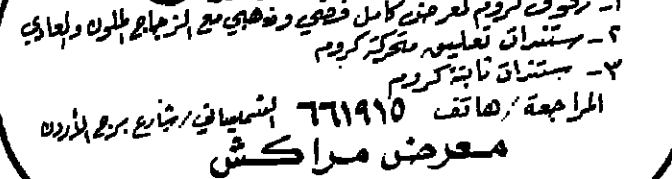 ١- رفوف كروم لمعرض كامل فضي وذهبي مع الزجاج الملون والعادي
٢- ستندات تعليق متحركة كروم
٣- ستندات ثابتة كروم
المراجعة / هاتف ٦٦١٩١٥ الشميساني / شارع برج الأردن
معرض مراكش